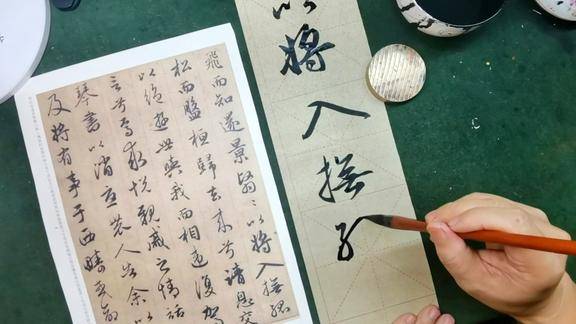 以將入撫子
飛而知還景翳〻以將入撫孤
松而盤桓歸去來兮請息交
以絕遊世與我而相違復駕
言兮焉求悅親戚之情話
琴書以消憂農人告余以
及將有事于西疇或命